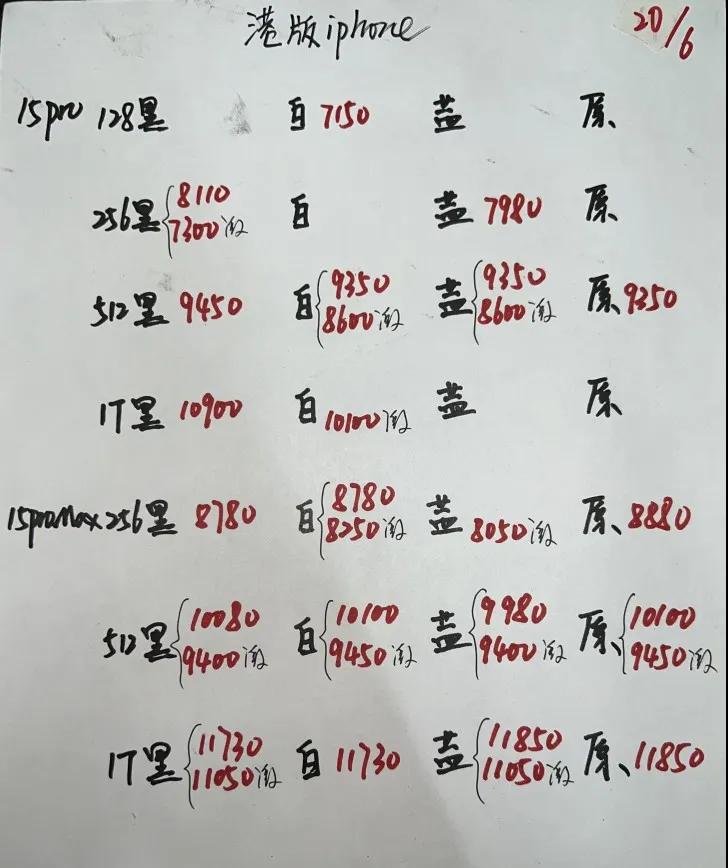 港版iphone 20/6
15pro 128黑 白 7150 盖 原、
256黑 8110 7300激 白 盖 7980 原、
512黑 9450 白 9350 8600激 盖 9350 8600激 原、9350
1T黑 10900 白 10100激 盖 原、
15proMax 256黑 8780 白 8780 8250激 盖 8050激 原、8880
512黑 10080 9400激 白 10100 9450激 盖 9980 9400激 原、10100 9450激
1T黑 11730 11050激 白 11730 盖 11850 11050激 原、11850